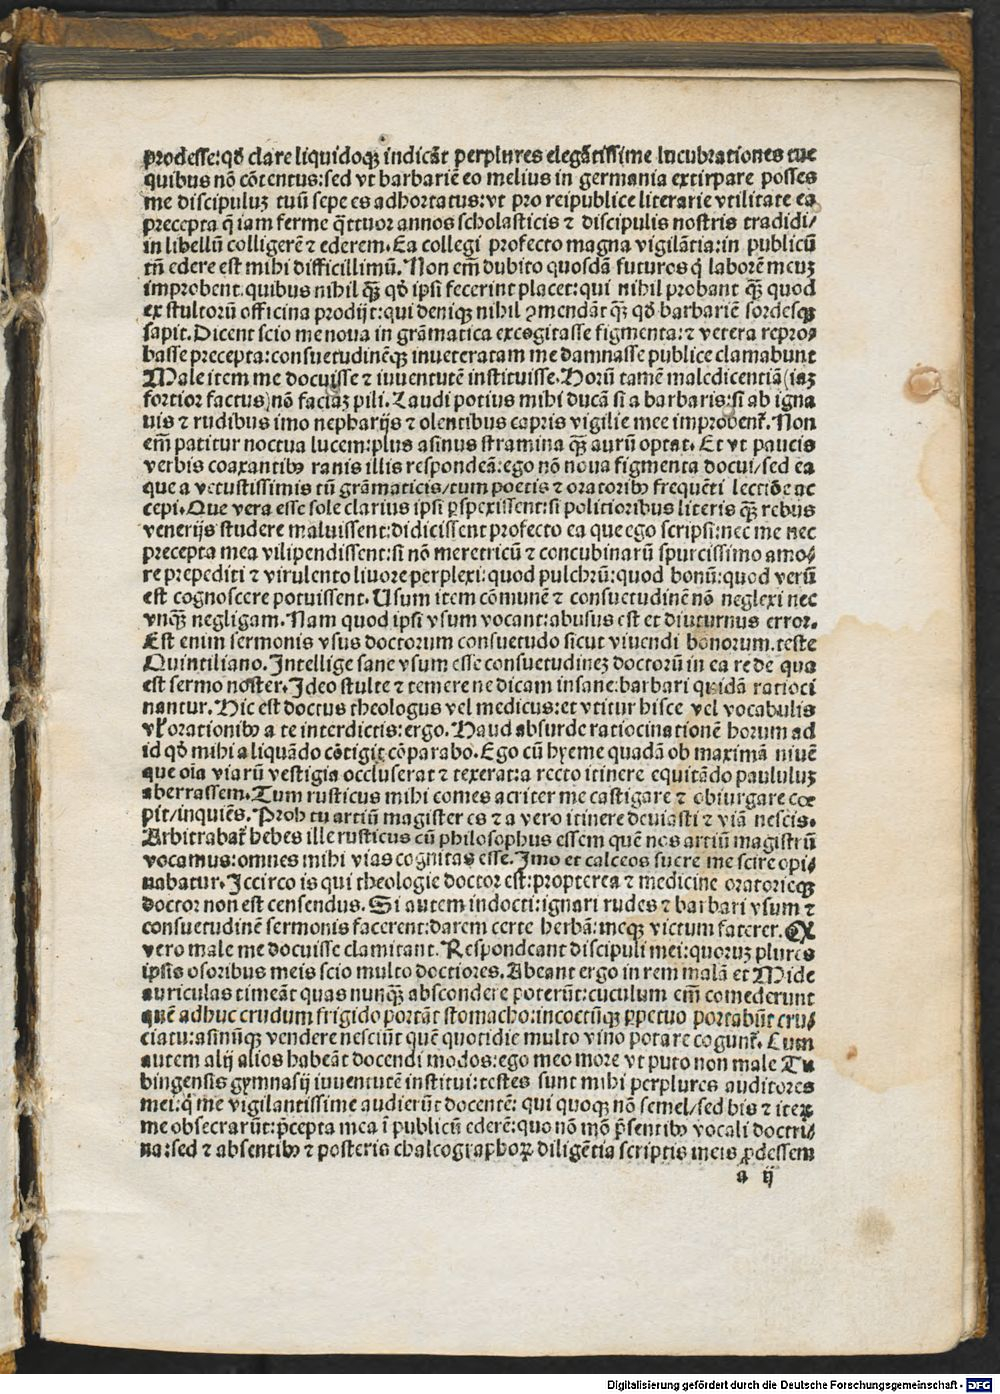 prodesse:qđ clare liquidoqꝫ indicāt perplures elegātissime lucubrationes tue
quibus nō cōtentus:sed vt barbariē eo melius in germania extirpare posses
me discipuluꝫ tuū sepe es adhortatus:vt pro reipublice literarie vtilitate ea
precepta q̄ iam ferme q̄ttuor annos scholasticis ⁊ discipulis nostris tradidi/
in libellū colligerē ⁊ ederem. Ea collegi profecto magna vigilātia:in publicū
tñ edere est mihi difficillimū. Non em̄ dubito quosdā futuros q̇ laborē meuꝫ
improbent.quibus nihil qꝫ̄ qđ ipsi fecerint placet:qui nihil probant qꝫ̄ quod
ex stultorū officina prodijt:qui deniqꝫ nihil ꝯmendāt qꝫ̄ qđ barbariē sordesqꝫ
sapit. Dicent scio me noua in grāmatica excogitasse figmenta:⁊ vetera repro-
basse precepta:consuetudinēqꝫ inueteratam me damnasse publice clamabunt
Male item me docuisse ⁊ iuuentutē instituisse. Horū tamē maledicentiā (iaꝫ
fortior factus) nō faciaꝫ pili. Laudi potius mihi ducā si a barbaris:si ab igna
uis ⁊ rudibus imo nepharijs ⁊ olentibus capris vigilie mee improbent᷑. Non
em̄ patitur noctua lucem:plus asinus stramina qꝫ̄ aurū optat. Et vt paucis
verbis coaxantibꝰ ranis illis respondeā:ego nō noua figmenta docui/sed ea
que a vetustissimis tū grāmaticis/tum poetis ⁊ oratoribꝰ frequēti lectiōe ac
cepi. Que vera esse sole clarius ipsi ꝑspexissent:si politioribus literis qꝫ̄ rebus
venerijs studere maluissent:didicissent profecto ea que ego scripsi:nec me nec
precepta mea vilipendissent:si nō meretricū ⁊ concubinarū spurcissimo amo-
re prepediti ⁊ virulento liuore perplexi:quod pulchrū:quod bonū:quod verū
est cognoscere potuissent. Usum item cōmunē ⁊ consuetudinē nō neglexi nec
vnqꝫ̄ negligam. Nam quod ipsi vsum vocant:abusus est et diuturnus error.
Est enim sermonis vsus doctorum consuetudo sicut viuendi bonorum.teste
Quintiliano. Intellige sane vsum esse consuetudineꝫ doctorū in ea re de qua
est sermo noster. Ideo stulte ⁊ temere ne dicam insane:barbari quidā ratioci
nantur. Hic est doctus theologus vel medicus:et vtitur hisce vel vocabulis
vl̓ orationibꝰ a te interdictis:ergo. Haud absurde ratiocinationē horum ad
id qđ mihi aliquādo cōtigit cōparabo. Ego cū hyeme quadā ob maximā niuē
que oīa viarū vestigia occluserat ⁊ texerat:a recto itinere equitādo paululuꝫ
aberrassem. Tum rusticus mihi comes acriter me castigare ⁊ obiurgare coe
pit/inquiēs. Proh tu artiū magister es ⁊ a vero itinere deuiasti ⁊ viā nescis.
Arbitrabat᷑ hebes ille rusticus cū philosophus essem quē nos artiū magistrū
vocamus:omnes mihi vias cognitas esse. Imo et calceos suere me scire opi-
nabatur. Iccirco is qui theologie doctor est:propterea ⁊ medicine oratorieqꝫ
doctor non est censendus. Si autem indocti:ignari rudes ⁊ barbari vsum ⁊
consuetudinē sermonis facerent:darem certe herbā:meqꝫ victum faterer. Qđ
vero male me docuisse clamitant. Respondeant discipuli mei:quoruꝫ plures
ipsis osoribus meis scio multo doctiores. Abeant ergo in rem malā et Mide
auriculas timeāt quas nunqꝫ̄ abscondere poterūt:cuculum em̄ comederunt
quē adhuc crudum frigido portāt stomacho:incoctūqꝫ ꝑpetuo portabūt cru-
ciatu:asinūqꝫ vendere nesciūt quē quotidie multo vino potare cogunt᷑. Cum
autem alij alios habeāt docendi modos:ego meo more vt puto non male Tu
bingensis gymnasij iuuentutē institui:testes sunt mihi perplures auditores
mei:q̇ me vigilantissime audierūt docentē: qui quoqꝫ nō semel/sed bis ⁊ iteꝝ
me obsecrarūt:p̄cepta mea ī publicū ederē:quo nō mō p̄sentibꝰ vocali doctri-
na:sed ⁊ absentibꝰ ⁊ posteris chalcographoꝝ diligētia scriptis meis ꝓdessem
a ij
Digitalisierung gefördert durch die Deutsche Forschungsgemeinschaft - DFG